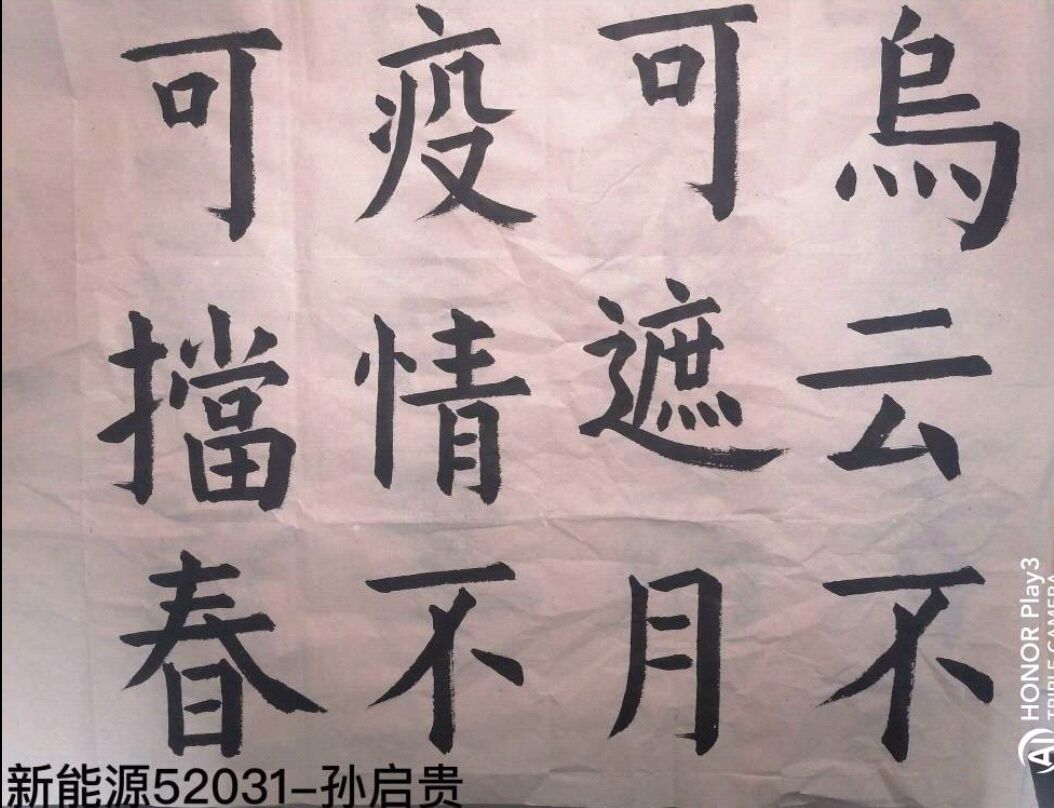 烏云不
可遮月
疫情不
可擋春
新能源52031-孙启贵
HONOR Play3
TRIPLE CAMERA